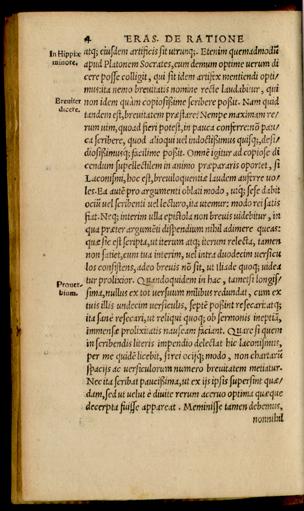 4 ERAS. DE RATIONE
In Hippia
minore.
atq; eiusdem artificis sit utrunq;. Etenim quemadmodũ
apud Platonem Socrates, cum demum optime uerum di
cere posse colligit, qui sit idem artifex mentiendi opti-
mus: ita nemo breuitatis nomine recte laudabitur, qui
Breuiter
dicere.
non idem quàm copiosissime scribere possit. Nam quid
tandem est, breuitatem præstare? Nempe maximam re-
rum uim, quoad fieri potest, in pauca conferre: nõ pau-
ca scribere, quod alioqui uel indoctissimus quisq;, desi-
diosissimusq; facilime possit. Omnẽ igitur ad copiose di
cendum supellectilem in animo præpararis oportet, si
Laconismi, hoc est, breuiloquentiæ laudem auferre uo-
les. Ea autẽ pro argumenti oblati modo, utq; sese dabit
ociũ uel scribenti uel lecturo, ita utemur: modo rei satis
fiat. Neq; interim ulla epistola non breuis uidebitur, in
qua præter argumẽti dispendium nihil adimere queas:
quæ sic est scripta, ut iterum atq; iterum relecta, tamen
non satiet, cum tua interim, uel intra duodecim uersicu
los consistens, adeo breuis nõ sit, ut Iliade quoq; uidea-
tur prolixior. Quandoquidem in hac, tametsi longis-
Prouer-
bium.
sima, nullus ex tot uersuum milibus redundat, cum ex
tuis illis undecim uersiculis, septẽ possint resecari: atq;
ita sanè resecari, ut reliqui quoq; ob sermonis ineptiã,
immensæ prolixitatis nauseam faciant. Quare si quem
in scribendis literis impendio delectat hic laconismus,
per me quidẽ licebit, si rei ocijq; modo, non chartarũ
spacijs ac uersiculorum numero breuitatem metiatur.
Nec ita scribat paucissima, ut ex ijs ipsis supersint quæ-
dam, sed ut uelut è diuite rerum aceruo optima quæque
decerpta fuisse appareat. Meminisse tamen debemus,
nonnihil